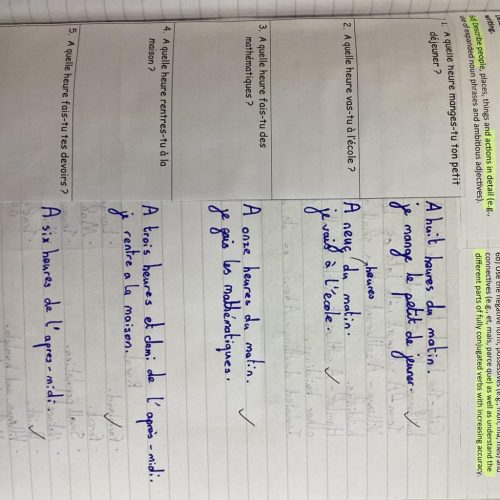 writing.
a) Describe people, places, things and actions in detail (e.g.,
use of expanded noun phrases and ambitious adjectives).
6b) Use the negative form, possessives (e.g., mon, ma, mes) and
connectives (e.g., et, mais, parce que) as well as understand the
different parts of fully conjugated verbs with increasing accuracy.
1. A quelle heure manges-tu ton petit
déjeuner ?
A huit heures du matin.
je mange le petit de jeuner.
2. A quelle heure vas-tu à l'école ?
heures
A neuf du matin.
je vais à l'école.
3. A quelle heure fais-tu des
mathématiques ?
A onze heures du matin.
je fais les mathématiques.
4. A quelle heure rentres-tu à la
maison ?
A trois heures et demi de l'après-midi.
je rentre a la maison.
5. A quelle heure fais-tu tes devoirs ?
A six heures de l'apres-midi.